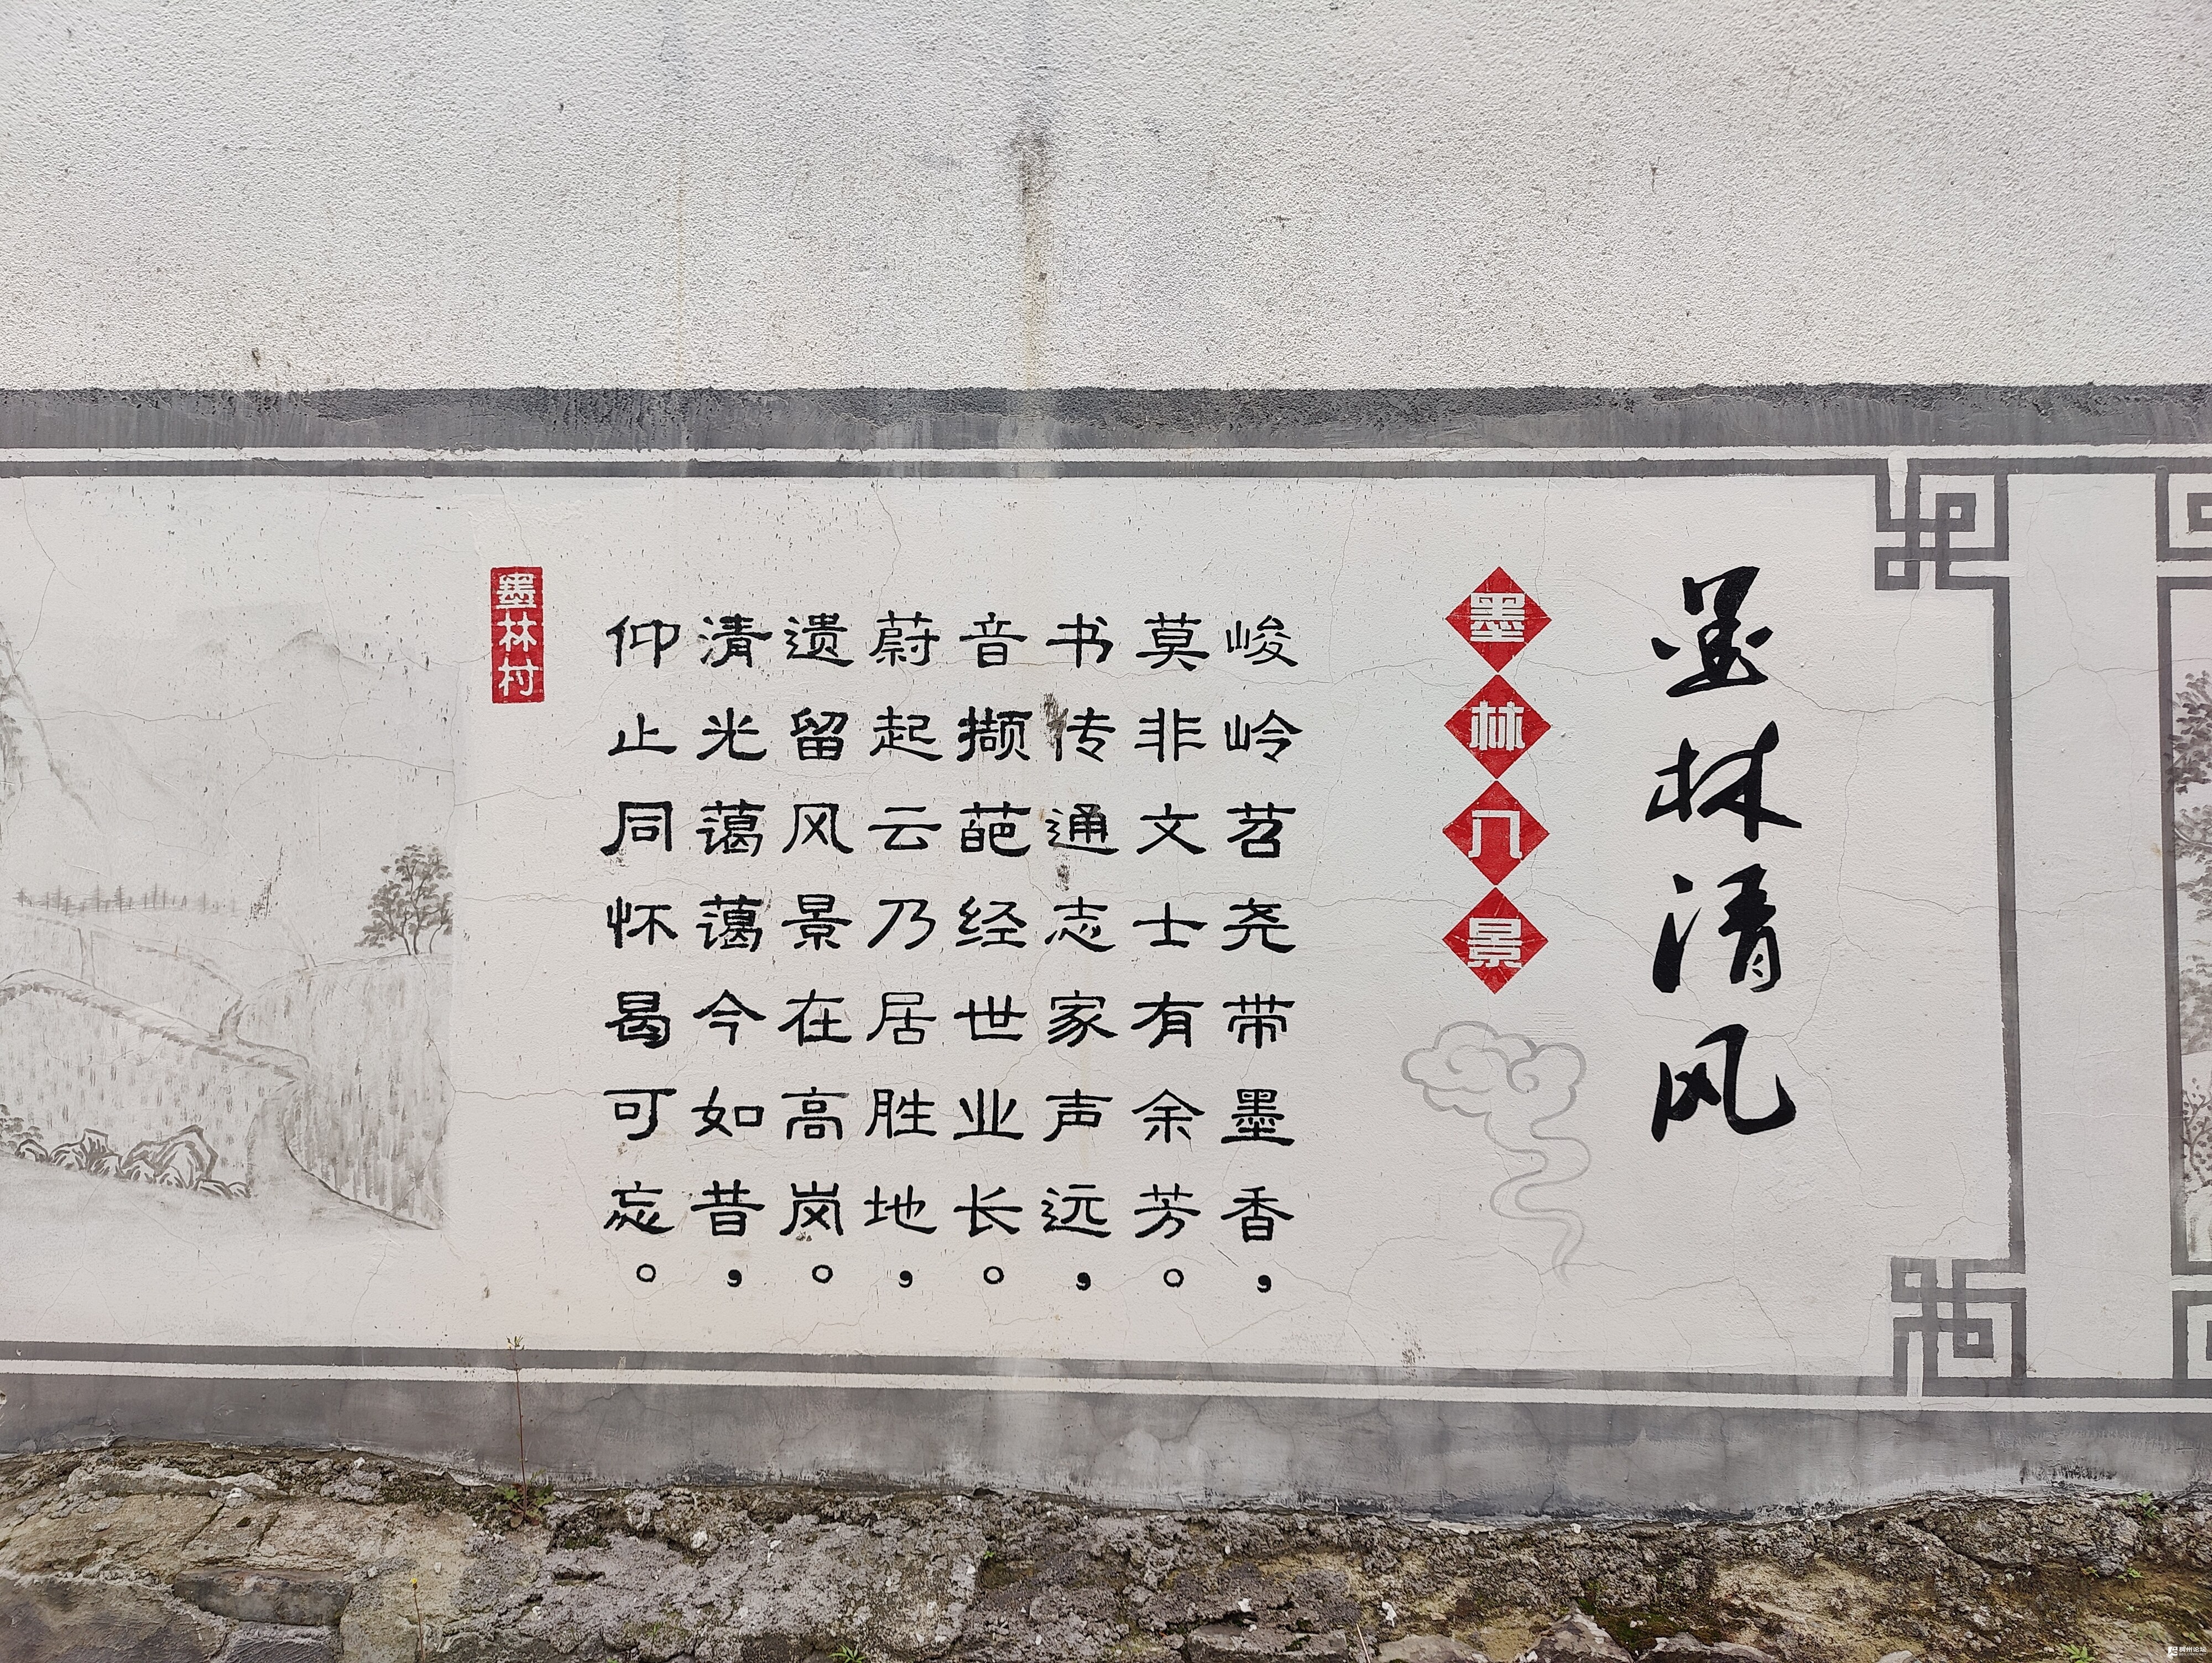 墨林清风
墨林八景
峻岭苕尧带墨香，
莫非文士有余芳。
书传通志家声远，
音撷葩经世业长。
蔚起云乃居胜地，
遗留风景在高岗。
清光蔼蔼今如昔，
仰止同怀曷可忘。
墨林村